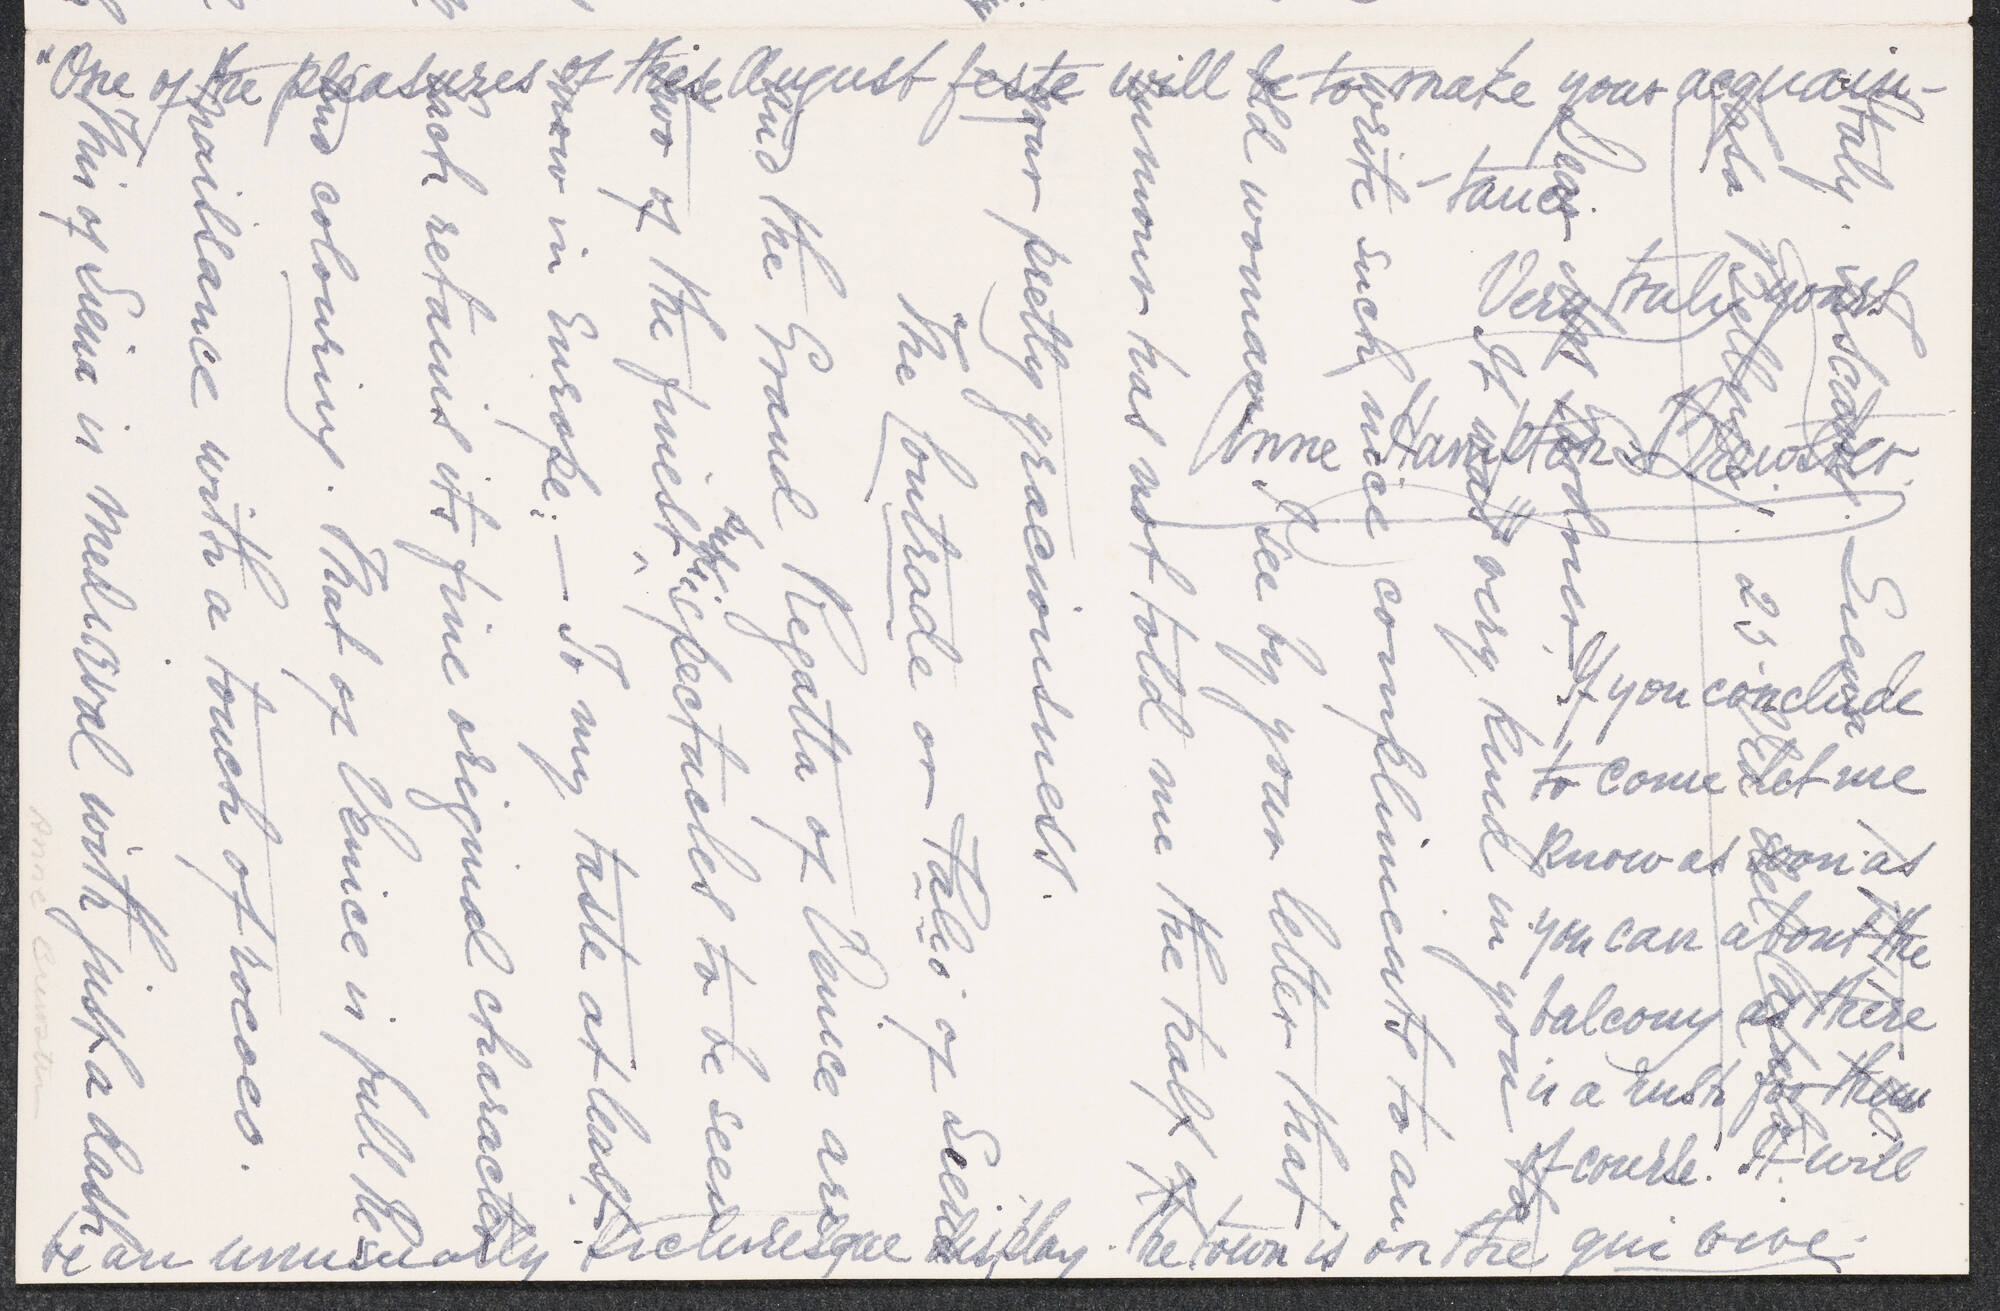 Italy.
Siena
25
Dear Miss Gardner,
It was very kind in you to
write such nice compliments to an
old woman. I see by your letter that
rumour has not told me the half of
your pretty graciousness.
"The Contrade or Palio of Siena
and the Grand Regatta of Venice are
two of the finest spectacles to be seen
now in Europe: — To my taste at least.
Each retains its fine original character
and colouring. That of Venice is full Re-
naissance with a touch of rococo.
This of Siena is Mediæval with just a dash
If you conclude
to come let me
know as soon as
you can about the
balcony as there
is a rush for them
of course. It will
be an unusually picturesque display. The town is on the qui vive.
"One of the pleasures of these August feste will be to make your acquain-
-tance.
Very truly yours
Anne Hamilton Brewster.
Anne Brewster